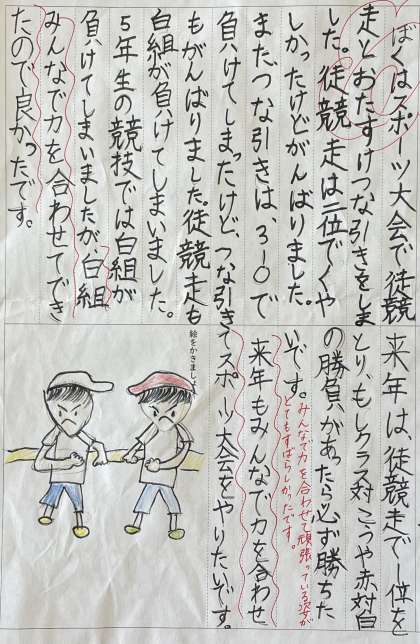 ぼくはスポーツ大会で徒競
走とおたすけつな引きをしま
した。徒競走は二位でくや
しかったけどがんばりました。
また、つな引きは、3-0で
負けてしまったけど、つな引き
もがんばりました。徒競走も
白組が負けてしまいました。
5年生の競技では白組が
負けてしまいましたが、白組
みんなで力を合わせてでき
たので良かったです。
来年は、徒競走で1位を
とり、もしクラス対こうや赤対白
の勝負があったら必ず勝ちた
いです。
みんなで力を合わせて頑張っている姿が
とてもすばらしかったです。
来年もみんなで力を合わせ
てスポーツ大会をやりたいです。
絵をかきましょう